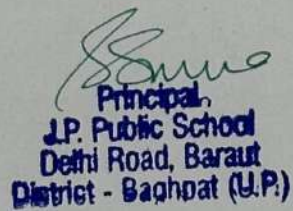 Principal
J.P. Public School
Delhi Road, Baraut
District - Baghpat (U.P.)